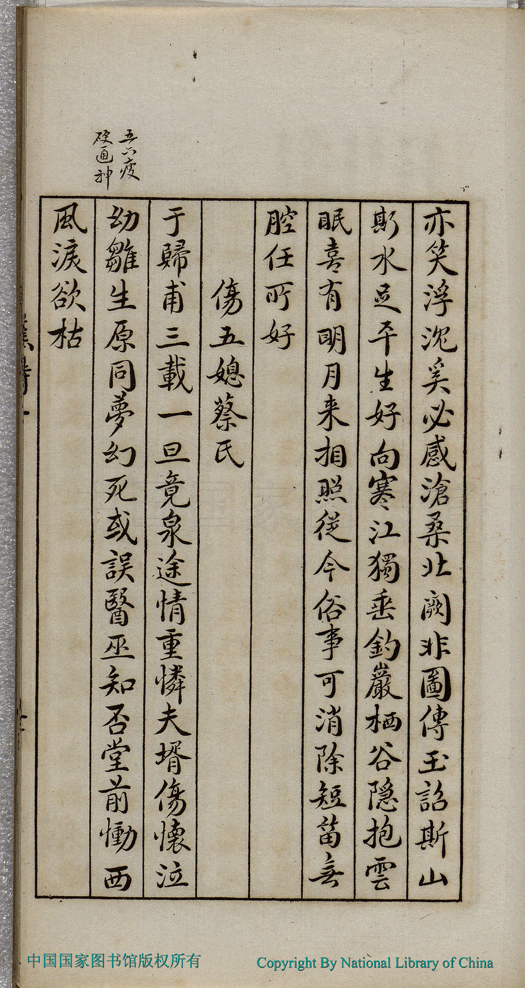 亦笑浮沈奚必感滄桑北闕非圖傳玉詔斯山
斯水足平生好向寒江獨垂釣巖栖谷隱抱雲
眠喜有明月来相照從今俗事可消除短笛無
腔任所好
傷五媳蔡氏
于歸甫三載一旦竟泉途情重憐夫壻傷懷泣
幼雛生原同夢幻死或誤醫巫知否堂前慟西
風淚欲枯
五六疲
砭通神
中国国家图书馆版权所有
Copyright By National Library of China